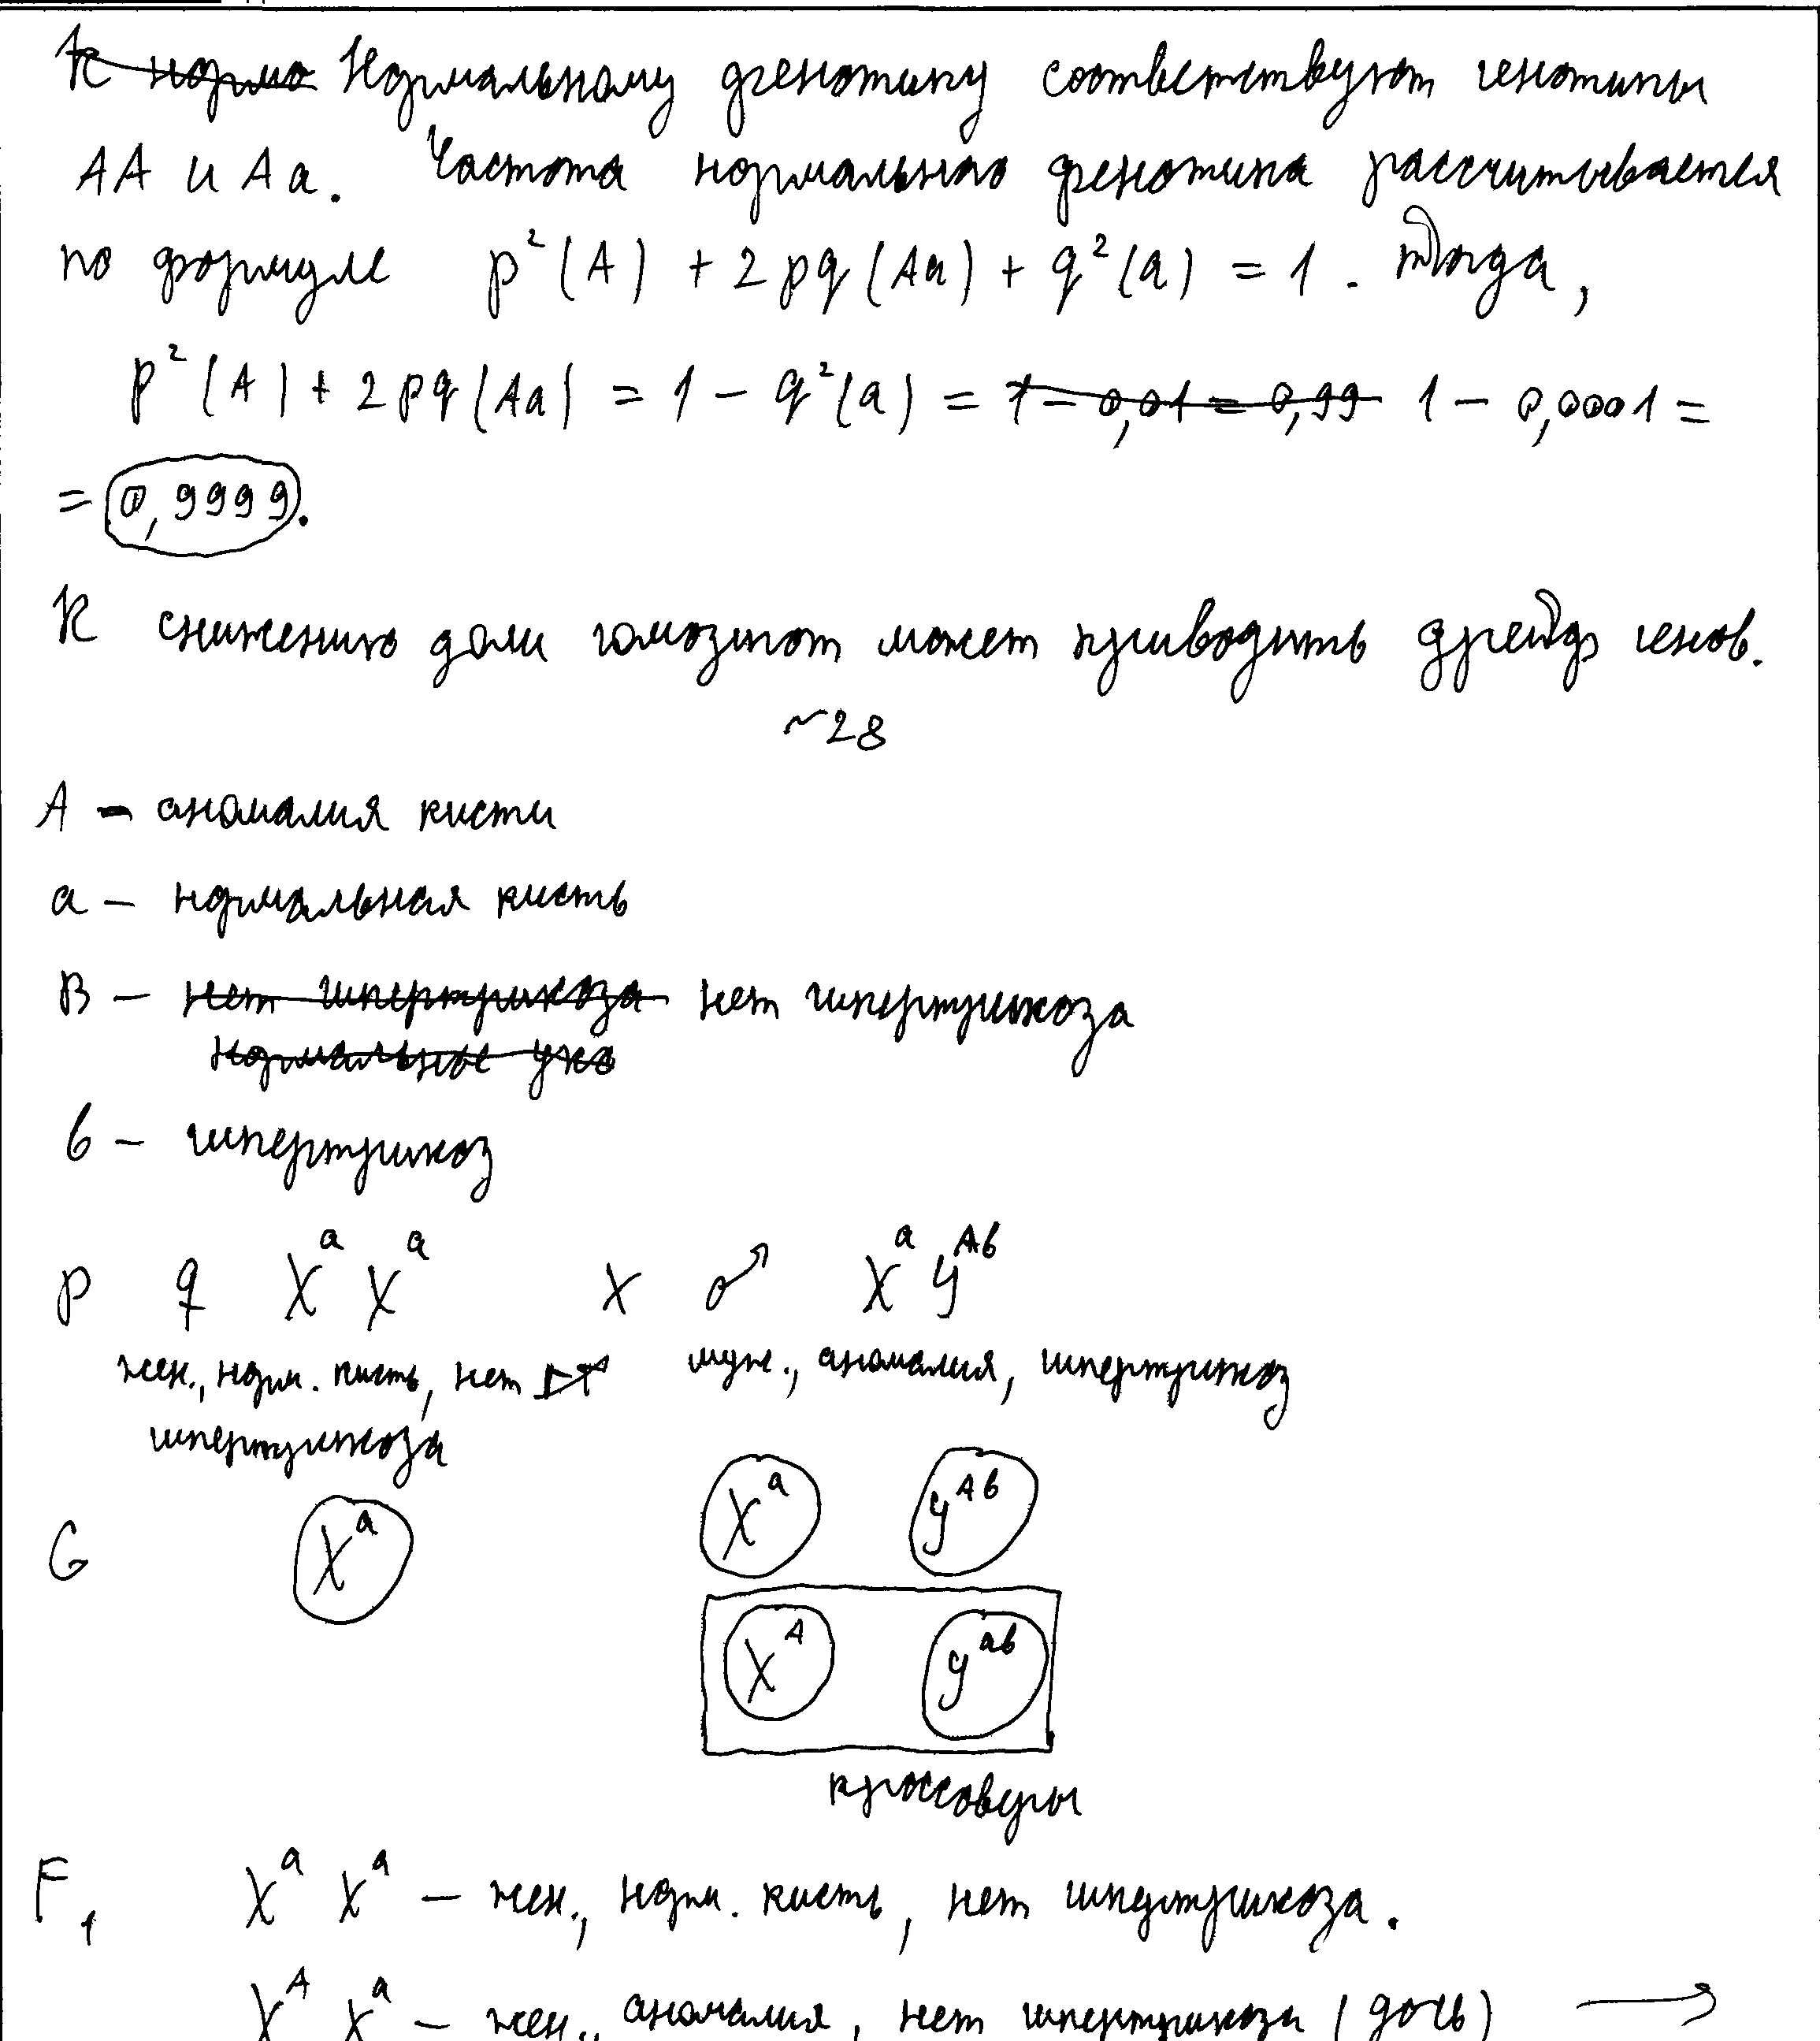 ~~К нормо~~ Нормальному фенотипу соответствуют генотипы
АА и Аа. Частота нормального фенотипа рассчитывается
по формуле p²(A) + 2pq(Aa) + q²(a) = 1. Тогда,
p²(A) + 2pq(Aa) = 1 − q²(a) = ~~1 − 0,01 = 0,99~~ 1 − 0,0001 =
= 0,9999.
К снижению доли гомозигот может приводить дрейф генов.
~28
А – аномалия кисти
а – нормальная кисть
В – ~~нет гипертрихоза~~ нет гипертрихоза
~~нормальные ухо~~
b – гипертрихоз
P ♀ Xᵃ Xᵃ x ♂ Xᵃ Yᴬᵇ
жен., норм. кисть, нет муж., аномалия, гипертрихоз
гипертрихоза
Xᵃ Yᴬᵇ
G Xᵃ
Xᴬ Yᵃᵇ
кроссоверы
F₁ Xᵃ Xᵃ – жен., норм. кисть, нет гипертрихоза.
Xᴬ Xᵃ – жен., аномалия, нет гипертрихоза (дочь) →